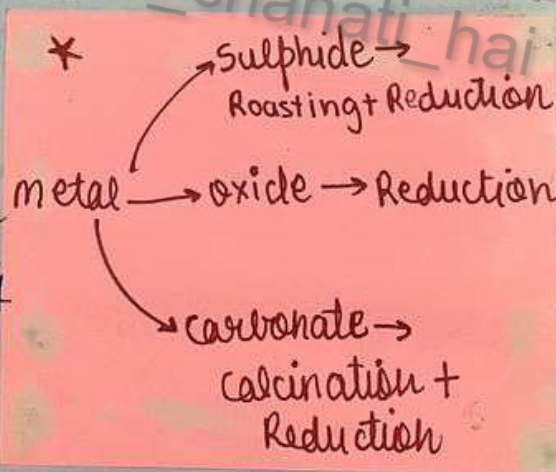 _chahati_hai
* Sulphide →
Roasting + Reduction
metal → oxide → Reduction
carbonate →
Calcination +
Reduction